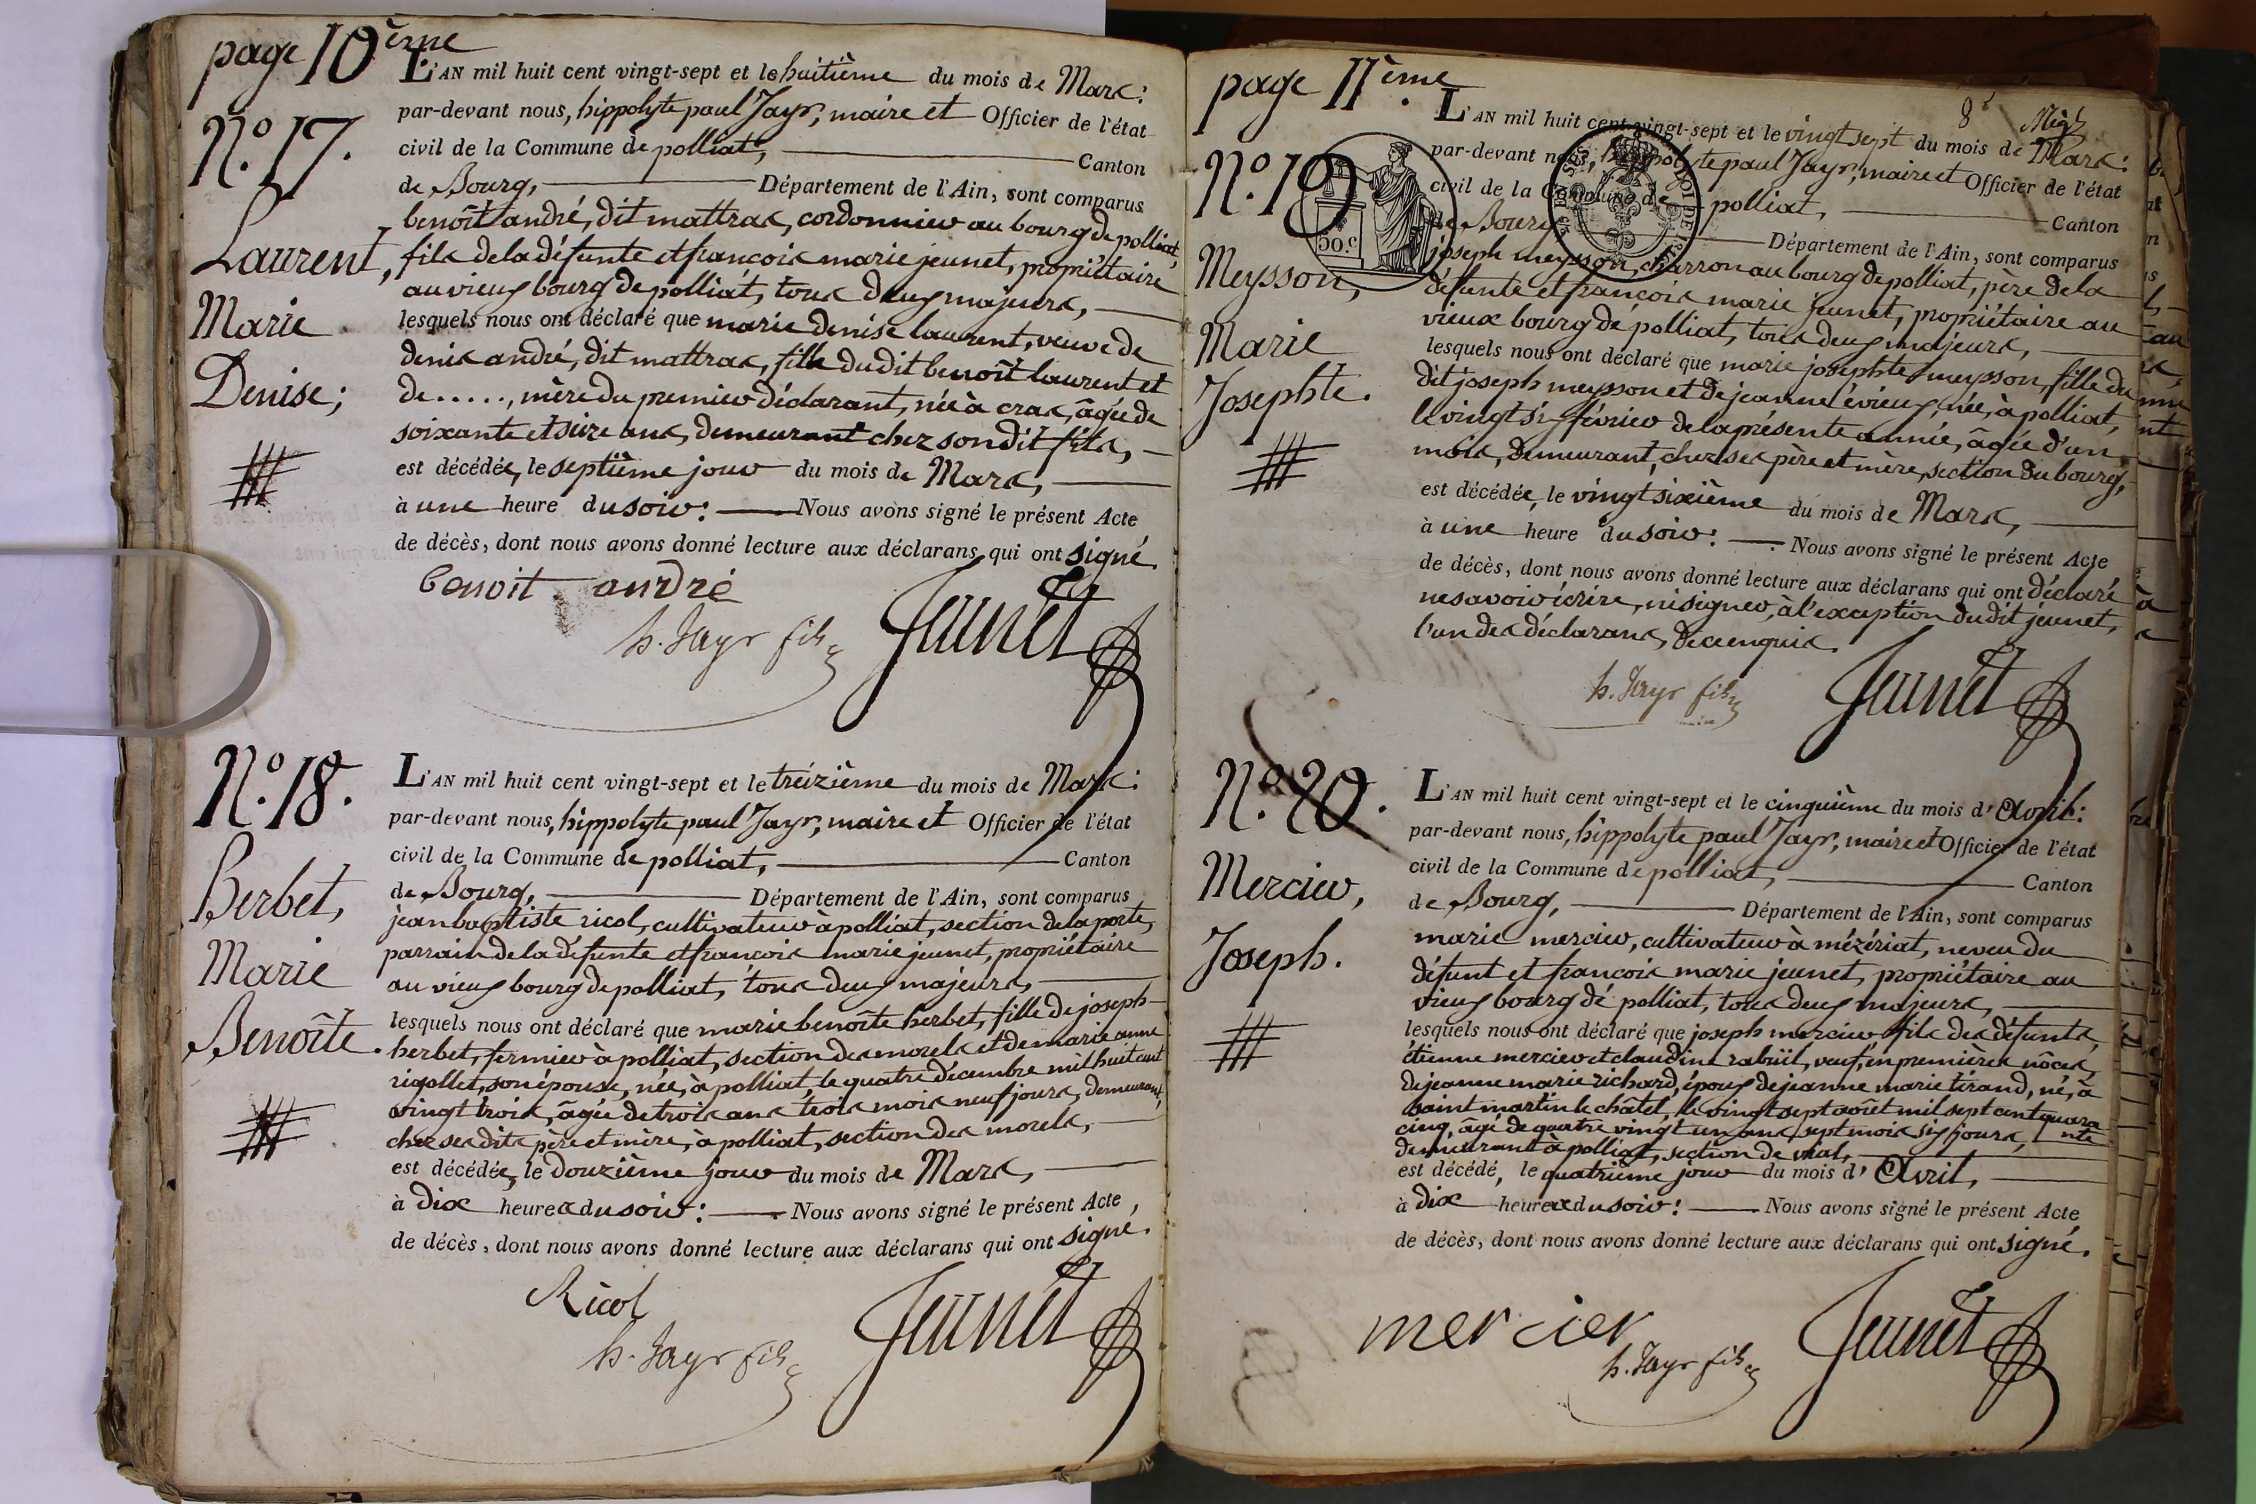 page 10ème
N.º 17.
Laurent,
Marie
Denise;
L'AN mil huit cent vingt-sept et le huitième du mois de Mars:
par-devant nous, hippolyte paul Jayr, maire et Officier de l'état
civil de la Commune de polliat, Canton
de Bourg, Département de l'Ain, sont comparus
benoît andré, dit mattras, cordonnier au bourg de polliat,
fils de la défunte et françois marie jeunet, propriétaire
au vieux bourg de polliat, tous deux majeurs,
lesquels nous ont déclaré que marie denise laurent, veuve de
denis andré, dit mattras, fille du dit benoît laurent et
de ....., mère du premier déclarant, née à cras, âgée de
soixante et seize ans, demeurant chez son dit fils,
est décédée, le septième jour du mois de Mars,
à une heure du soir: Nous avons signé le présent Acte
de décès, dont nous avons donné lecture aux déclarans qui ont signé.
benoit andré
h. Jayr fils
Jeunet
N.º 18.
Herbet,
Marie
Benoîte.
L'AN mil huit cent vingt-sept et le treizième du mois de Mars:
par-devant nous, hippolyte paul Jayr, maire et Officier de l'état
civil de la Commune de polliat, Canton
de Bourg, Département de l'Ain, sont comparus
jean baptiste ricol, cultivateur à polliat, section de la porte,
parrain de la défunte et françois marie jeunet, propriétaire
au vieux bourg de polliat, tous deux majeurs,
lesquels nous ont déclaré que marie benoîte herbet, fille de joseph
herbet, fermier à polliat, section des morels et de marie anne
rigollet, son épouse, née, à polliat, le quatre décembre mil huit cent
vingt trois, âgée de trois ans trois mois neuf jours, demeurant,
chez ses dits père et mère, à polliat, section des morels,
est décédée, le douzième jour du mois de Mars,
à dix heures du soir: Nous avons signé le présent Acte
de décès, dont nous avons donné lecture aux déclarans qui ont signé.
Ricol
h. Jayr fils
Jeunet
page 11ème.
N.º 19
Meysson,
Marie
Josephte.
L'AN mil huit cent vingt-sept et le vingt sept du mois de Mars:
par-devant nous, hippolyte paul Jayr, maire et Officier de l'état
civil de la Commune de polliat, Canton
de Bourg Département de l'Ain, sont comparus
joseph meysson, charron au bourg de polliat, père de la
défunte et françois marie jeunet, propriétaire au
vieux bourg de polliat, tous deux majeurs,
lesquels nous ont déclaré que marie josephte meysson, fille du
dit joseph meysson et de jeanne évieux, née, à polliat,
le vingt six février de la présente année, âgée d'un
mois, demeurant, chez ses père et mère, section du bourg,
est décédée, le vingt sixième du mois de Mars,
à une heure du soir: Nous avons signé le présent Acte
de décès, dont nous avons donné lecture aux déclarans qui ont déclaré
ne savoir écrire, ni signer, à l'exception du dit jeunet,
l'un des déclarans, de ce enquis.
h. Jayr fils
Jeunet
50.c
N.º 20.
Mercier,
Joseph.
L'AN mil huit cent vingt-sept et le cinquième du mois d'Avril:
par-devant nous, hippolyte paul Jayr, maire et Officier de l'état
civil de la Commune de polliat, Canton
de Bourg, Département de l'Ain, sont comparus
marie mercier, cultivateur à mézériat, neveu du
défunt et françois marie jeunet, propriétaire au
vieux bourg de polliat, tous deux majeurs,
lesquels nous ont déclaré que joseph mercier, fils des défunts,
étienne mercier et claudine rabuil, veuf, en premières nôces,
de jeanne marie richard, époux de jeanne marie tirand, né, à
saint martin le châtel, le vingt sept août mil sept cent quarante
cinq, âgé de quatre vingt un ans, sept mois six jours,
demeurant à polliat, section de vial,
est décédé, le quatrième jour du mois d'Avril,
à dix heures du soir: Nous avons signé le présent Acte
de décès, dont nous avons donné lecture aux déclarans qui ont signé.
mercier
h. Jayr fils
Jeunet